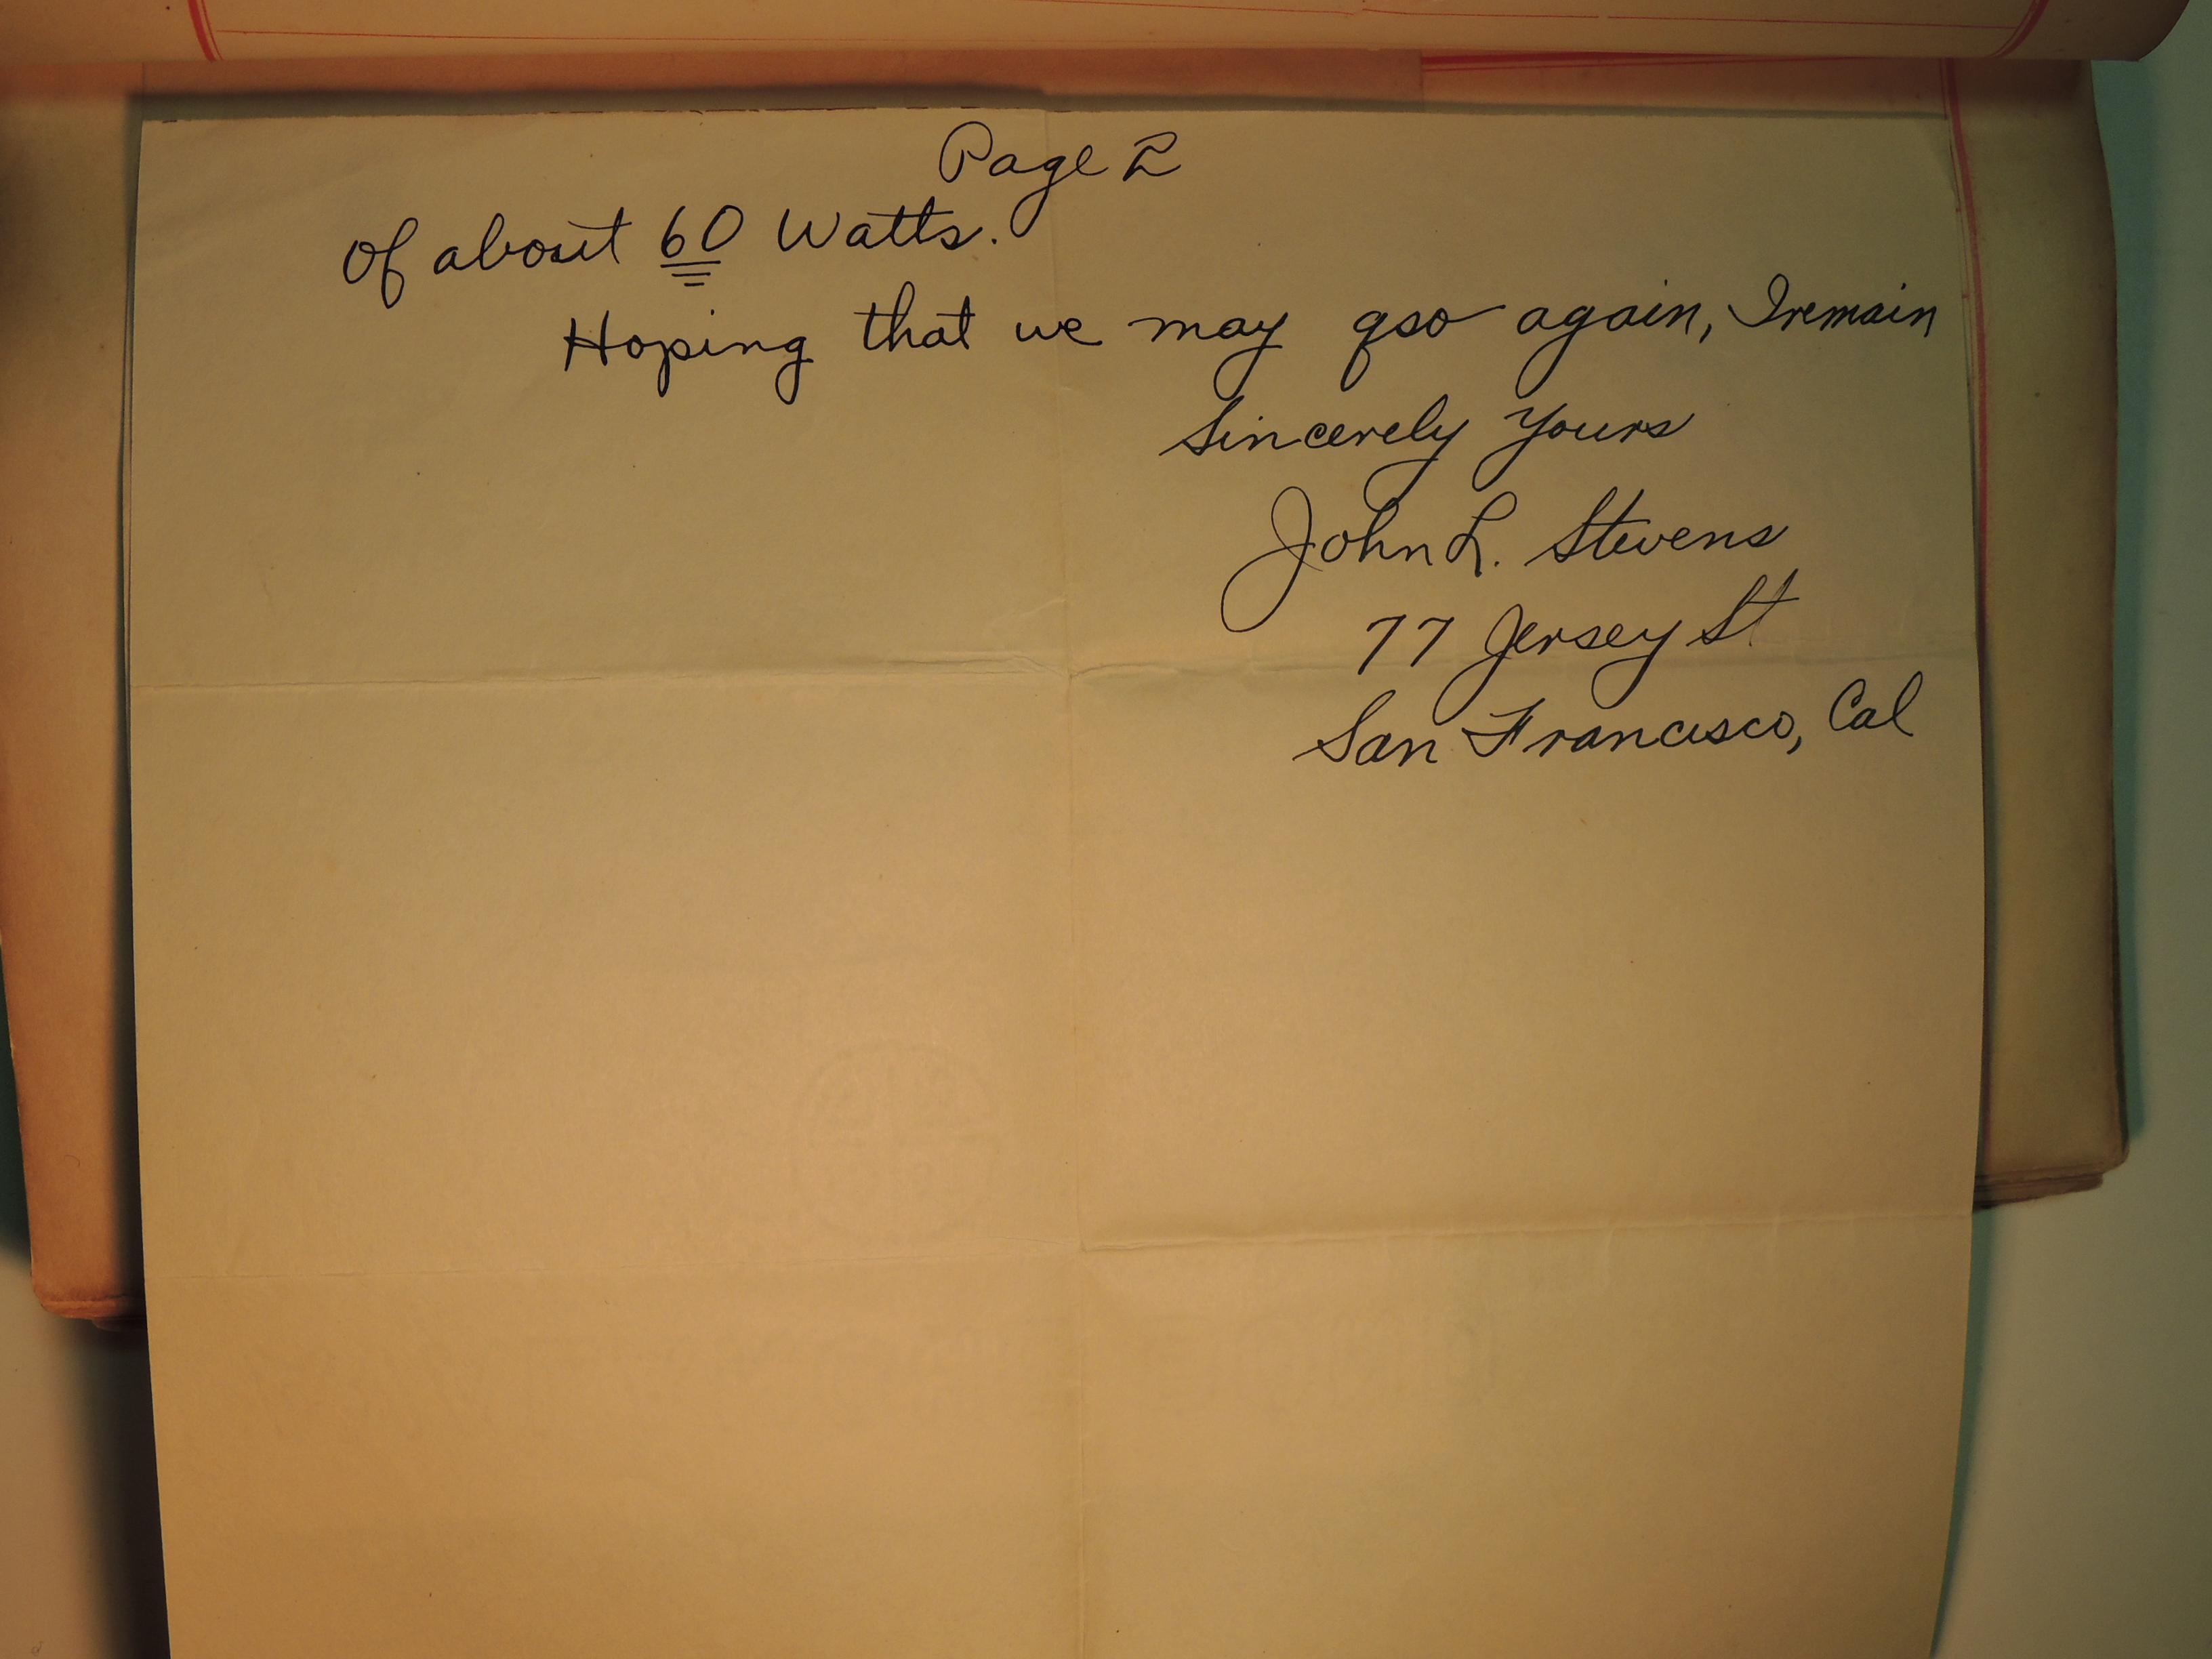 Page 2
of about 60 Watts.
Hoping that we may qso again, I remain
Sincerely Yours
John L. Stevens
77 Jersey St
San Francisco, Cal